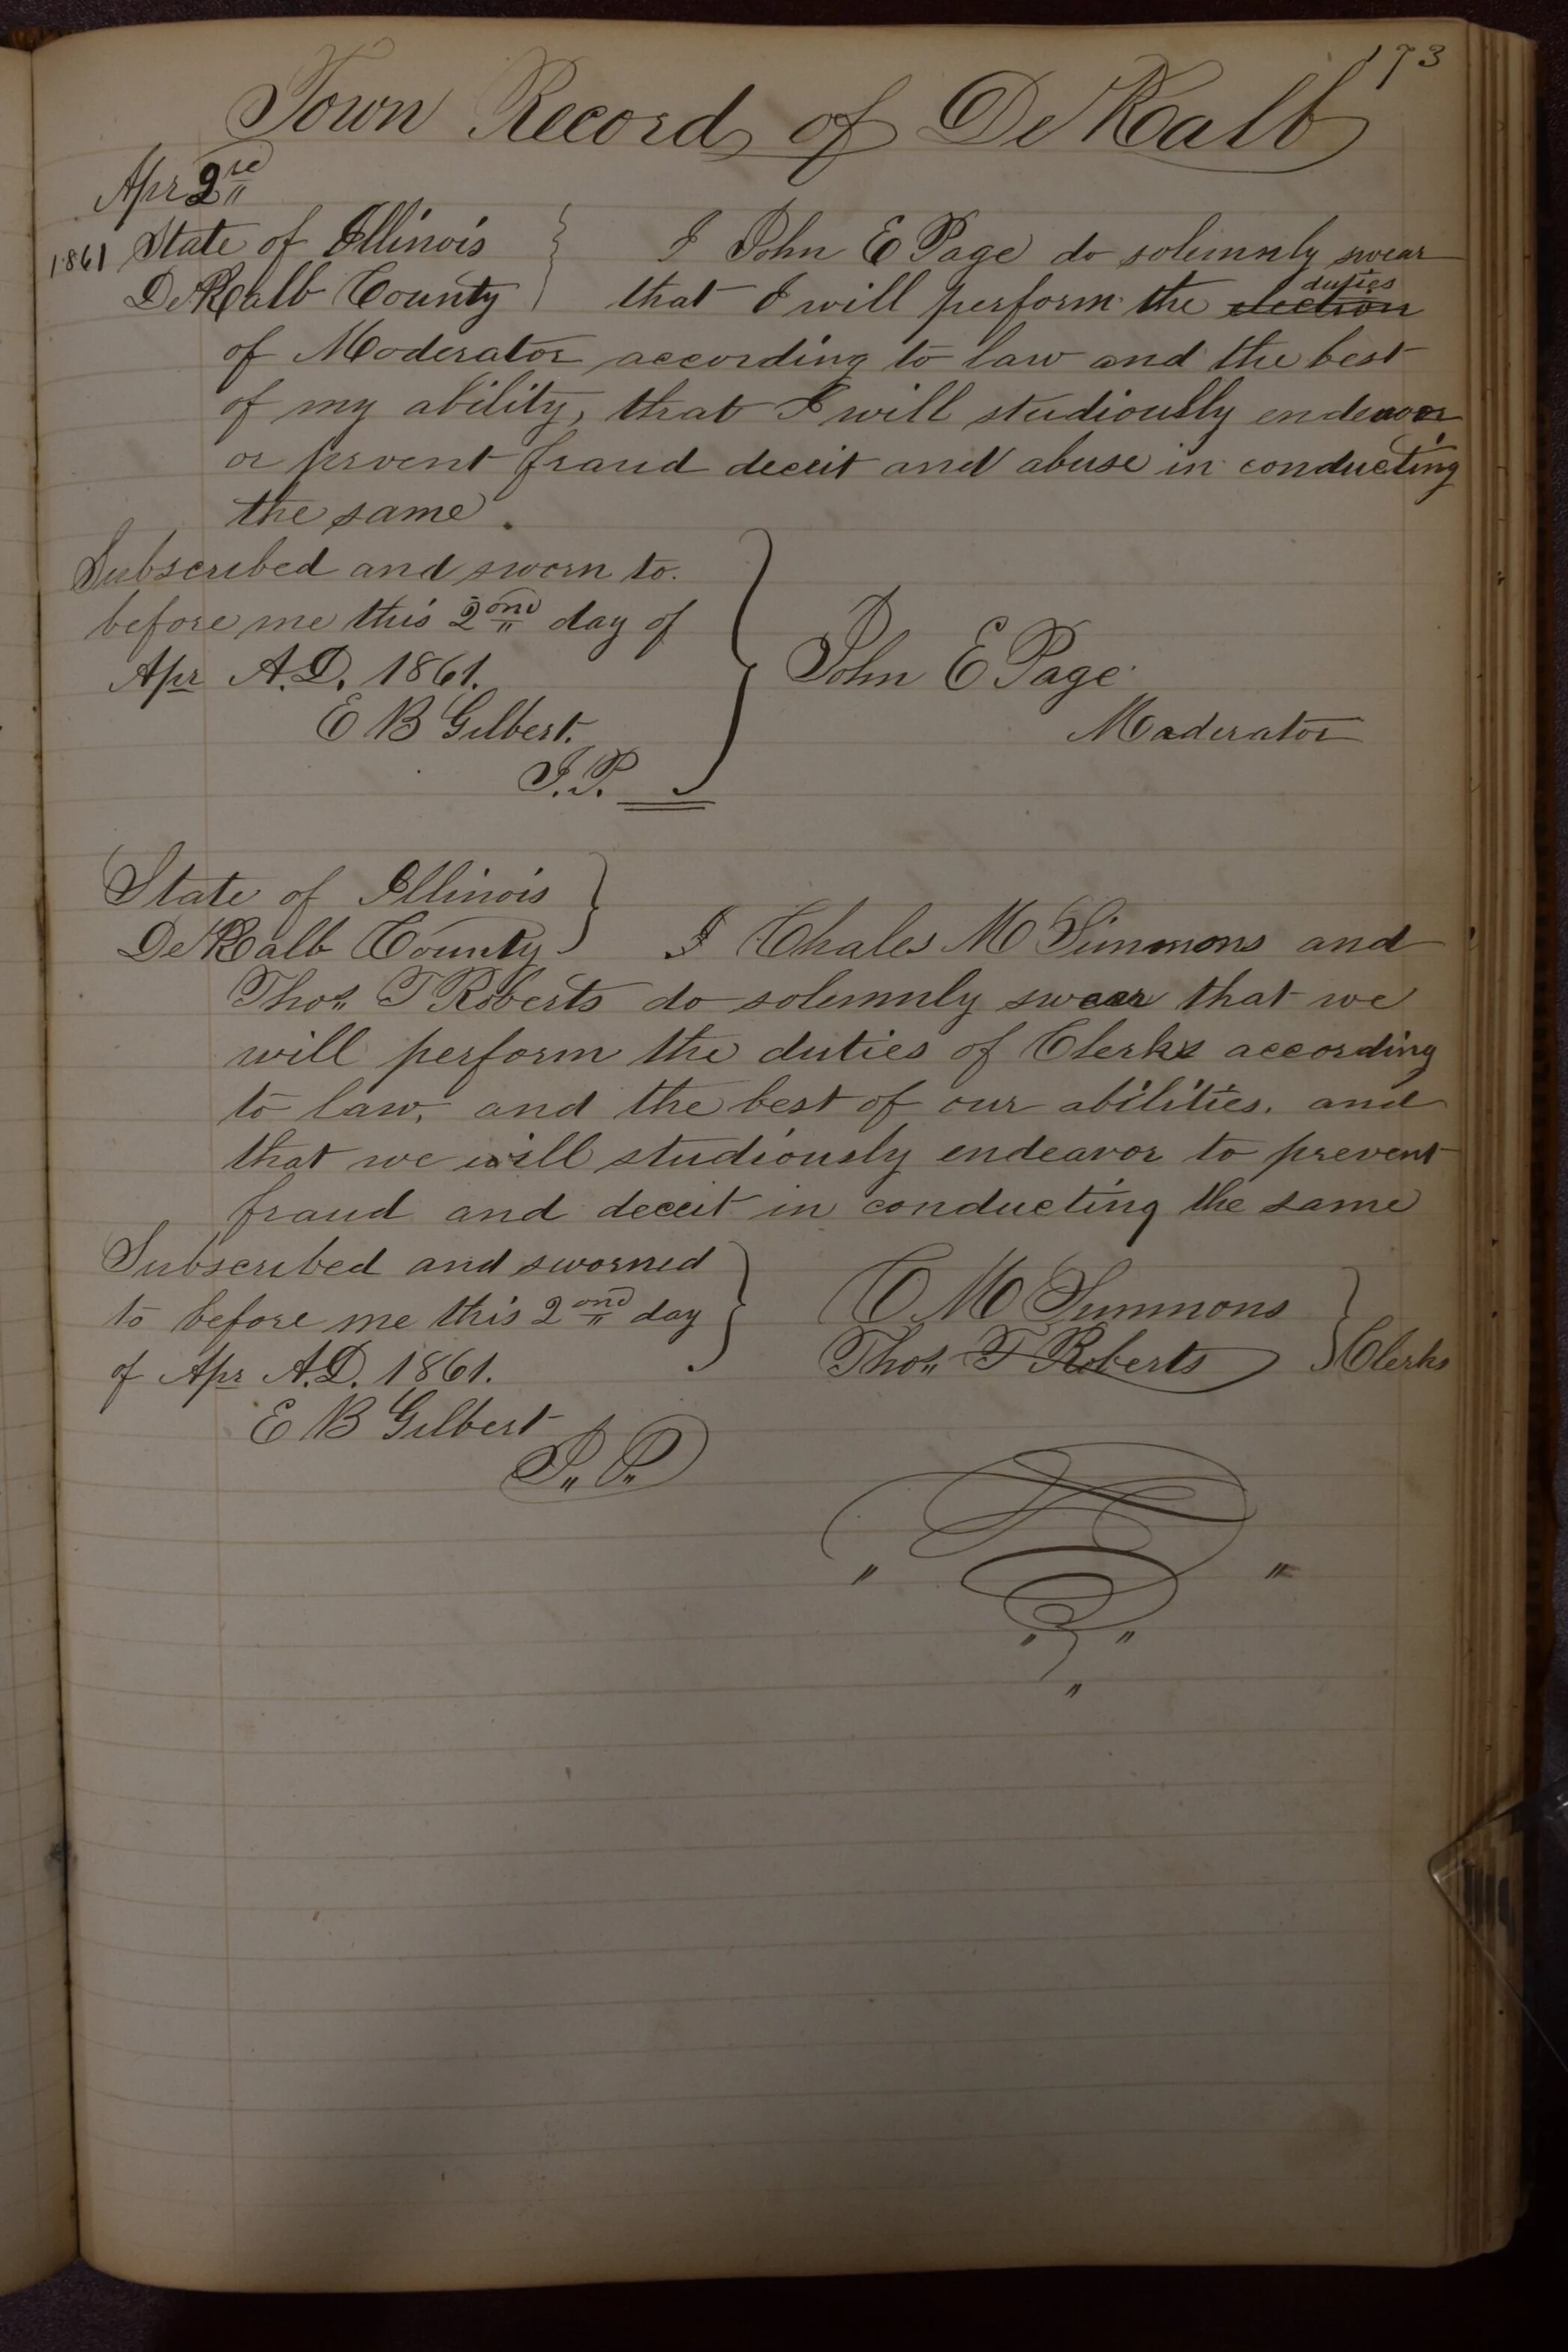 173
Town Record of DeKalb
Apr 2nd
1861 State of Illinois } I John E Page do solemnly swear
DeKalb County } that I will perform the ~~election~~ duties
of Moderator according to law and the best
of my ability, that I will studiously endeavor
or prvent fraud deceit and abuse in conducting
the same.
Subscribed and sworn to.
before me this 2ond day of
Apr A.D. 1861.
E B Gilbert.
J.P.
John E Page
Moderator
State of Illinois }
DeKalb County } I Chales M Simmons and
Thos T Roberts do solemnly swear that we
will perform the duties of Clerks according
to law, and the best of our abilities. and
that we will studiously endeavor to prevent
fraud and deceit in conducting the same
Subscribed and sworned
to before me this 2ond day
of Apr A.D. 1861.
E B Gilbert
J.. P..
C M Simmons
Thos T Roberts } Clerks